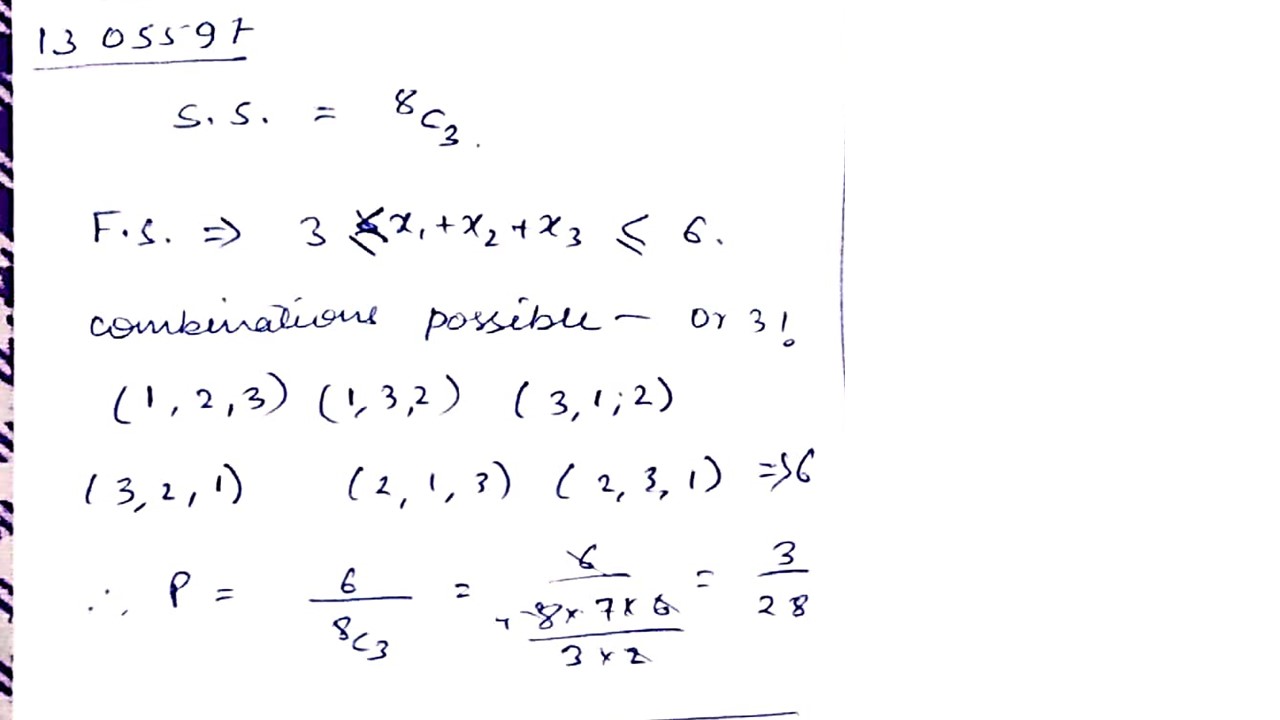 13 05597
S.S. = ⁸C₃.
F.S. ⇒ 3 ≤ x₁ + x₂ + x₃ ≤ 6.
combinations possible — or 3!
(1, 2, 3) (1, 3, 2) (3, 1, 2)
(3, 2, 1) (2, 1, 3) (2, 3, 1) ⇒ 6
∴ P = 6/⁸C₃ = 6/((8 × 7 × 6)/(3 × 2)) = 3/28